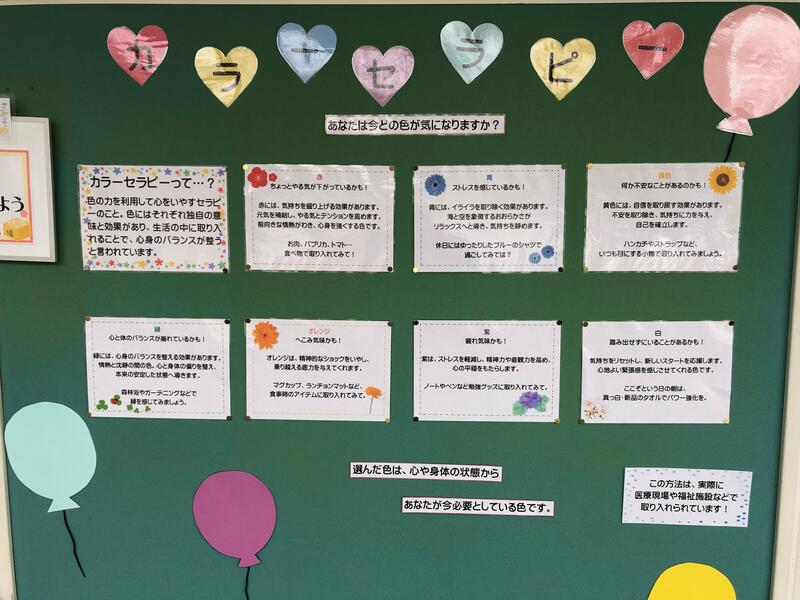 カラーセラピー
あなたは今どの色が気になりますか？
カラーセラピーって…？
色の力を利用して心をいやすセラピ
ーのこと。色にはそれぞれ独自の意
味と効果があり、生活の中に取り入
れることで、心身のバランスが整う
と言われています。
赤
ちょっとやる気が下がっているかも！
赤には、気持ちを盛り上げる効果があります。
元気を補給し、やる気とテンションを高めます。
前向きな情熱がわき、心身を強くする色です。
お肉、パプリカ、トマト…
食べ物で取り入れてみて！
青
ストレスを感じているかも！
青には、イライラを取り除く効果があります。
海と空を象徴するおおらかさが
リラックスへと導き、気持ちを静めます。
休日にはゆったりしたブルーのシャツで
過ごしてみては？
黄色
何か不安なことがあるのかも！
黄色には、自信を取り戻す効果があります。
不安を取り除き、気持ちに力を与え、
自己を確立します。
ハンカチやストラップなど、
いつも目にする小物で取り入れてみましょう。
緑
心と体のバランスが崩れているかも！
緑には、心身のバランスを整える効果があります。
情熱と沈静の間の色。心と身体の偏りを整え、
本来の安定した状態へ導きます。
森林浴やガーデニングなどで
緑を感じてみましょう。
オレンジ
へこみ気味かも！
オレンジは、精神的なショックをいやし、
乗り越える底力を与えてくれます。
マグカップ、ランチョンマットなど、
食事時のアイテムに取り入れてみて。
紫
疲れ気味かも！
紫は、ストレスを軽減し、精神力や直観力を高め、
心の平穏をもたらします。
ノートやペンなど勉強グッズに取り入れてみて。
白
踏み出せずにいることがあるかも！
気持ちをリセットし、新しいスタートを応援します。
心地よい緊張感を感じさせてくれる色です。
ここぞという日の朝は、
真っ白・新品のタオルでパワー強化を。
選んだ色は、心や身体の状態から
あなたが今必要としている色です。
この方法は、実際に
医療現場や福祉施設などで
取り入れられています！
よう